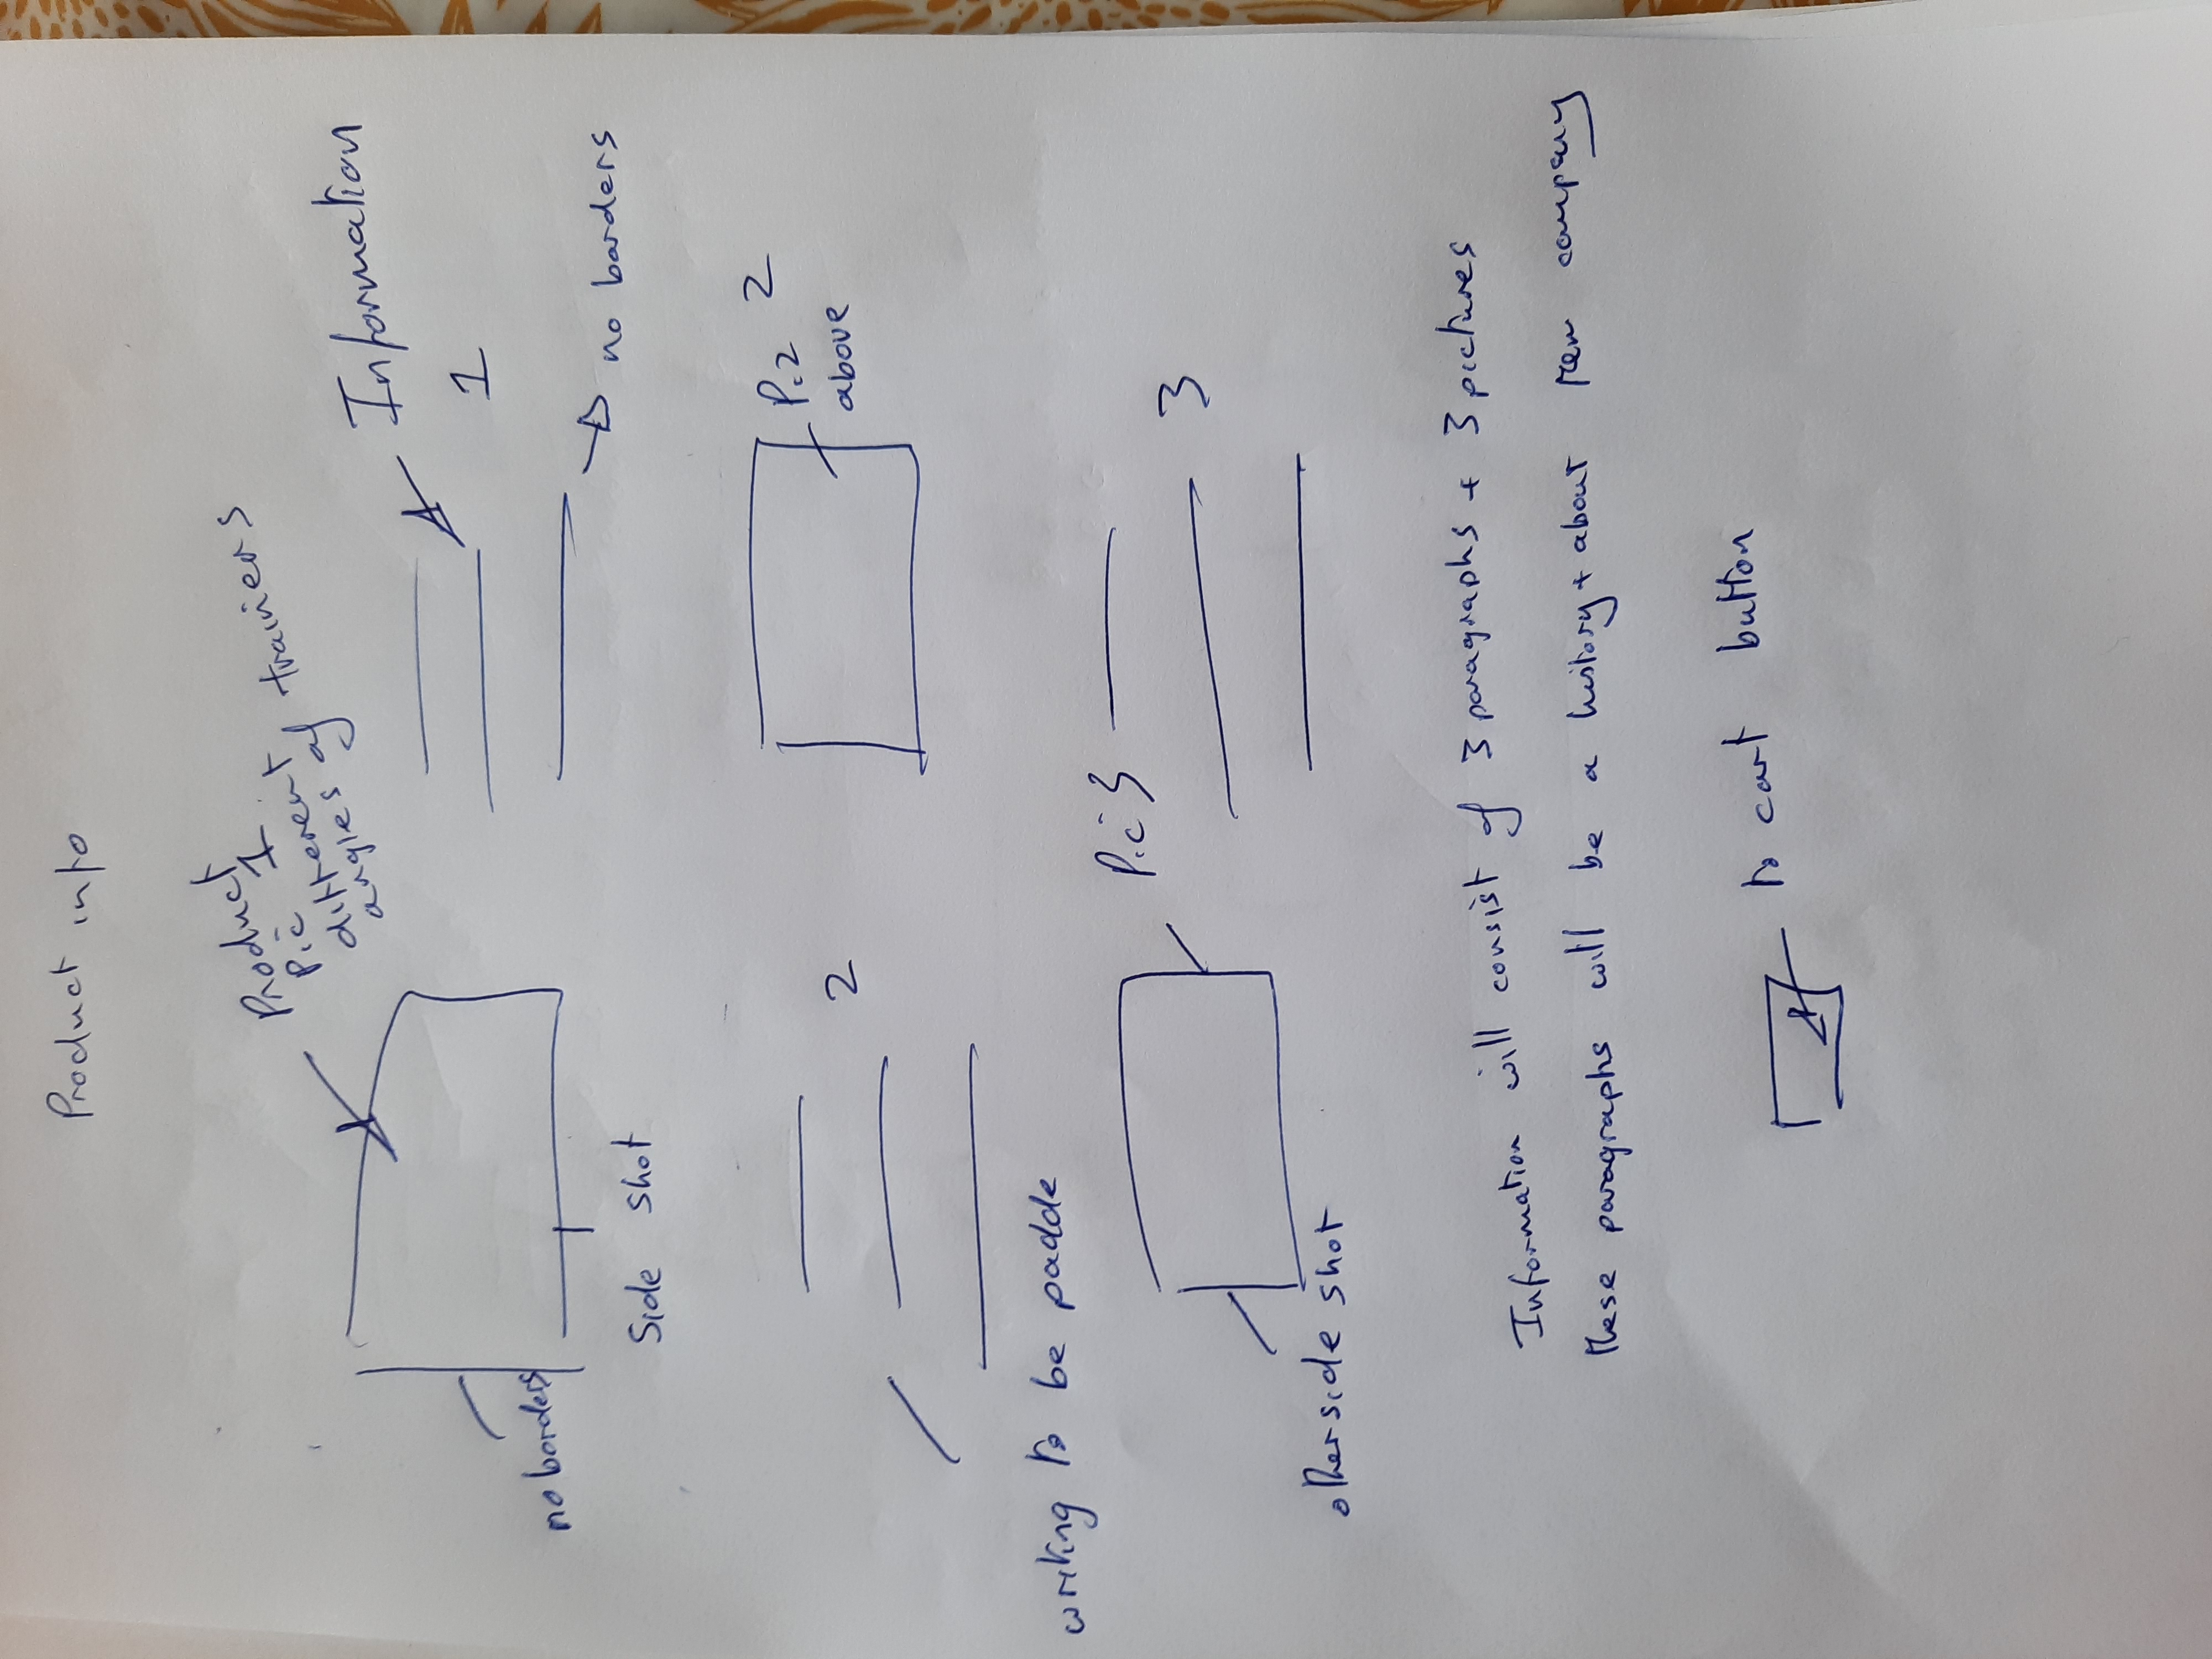 Product info
Product
Pic 1
different
angles of trainers
Information
1
no borders
Side shot
no borders
2
Pic 2
above
writing to be padde
Pic 3
3
otherside shot
Information will consist of 3 paragraphs + 3 pictures
these paragraphs will be a history + about company
to cart button